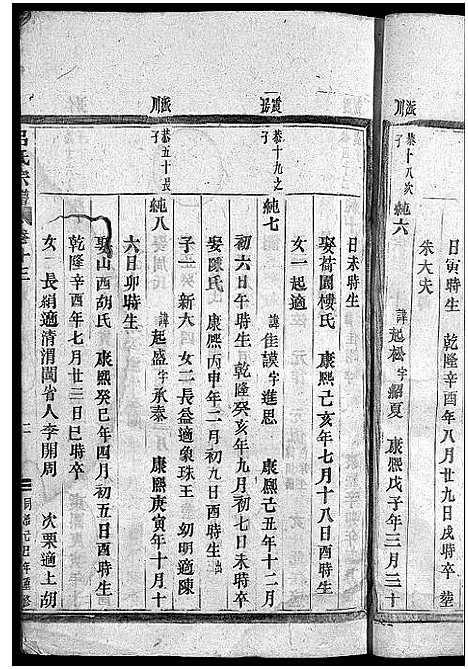 日寅時生　乾隆辛酉年八月廿九日戌時卒　葬
朱大夫
派川
恭十八次子
純六　諱起松字紹夏　康熙戊子年三月三十
日未時生
娶荷園樓氏　康熙己亥年七月十八日酉時生
女一起適
恭十九之子
純七　諱佳謨字進思　康熙己丑年十二月
初六日午時生　乾隆癸亥年九月初七日未時卒
娶陳氏　康熙丙申年二月初九日酉時生　出
子一　新大　女二　長益適象珠王　幼明適陳
派川
恭五十長子
純八　諱起盛字承泰　康熙庚寅年十月十
六日卯時生
娶山西胡氏　康熙癸巳年四月初五日酉時生
乾隆辛酉年七月廿三日巳時卒
女一　長絹適清渭閩省人李開周　次栗適上胡
呂氏宗譜
卷十三
同治元年重修